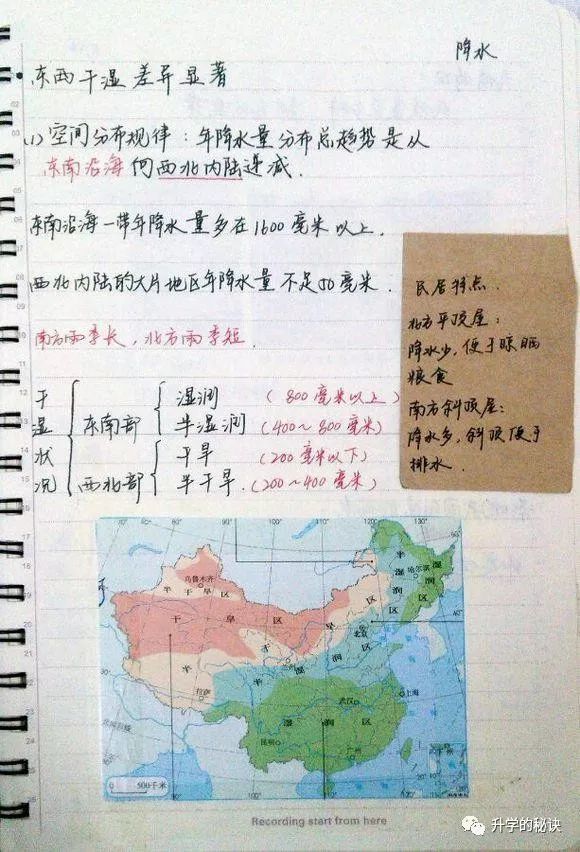 降水
东西干湿差异显著
(1) 空间分布规律：年降水量分布总趋势是从
东南沿海向西北内陆递减.
东南沿海一带年降水量多在1600毫米以上.
西北内陆的大片地区年降水量不足50毫米.
南方雨季长，北方雨季短.
干湿状况
东南部
湿润 (800毫米以上)
半湿润 (400~800毫米)
西北部
干旱 (200毫米以下)
半干旱.(200~400毫米)
民居特点.
北方平顶屋：
降水少，便于晾晒
粮食
南方斜顶屋：
降水多，斜顶便于
排水.
70° 80° 90° 100° 110° 120° 130°
乌鲁木齐
半干旱区
干旱区
半湿润区
湿润区
哈尔滨
北京
半干旱区
半湿润区
拉萨
武汉
上海
湿润区
昆明
广州
0 500千米
80° 90° 100° 110°
Recording start from here
升学的秘诀